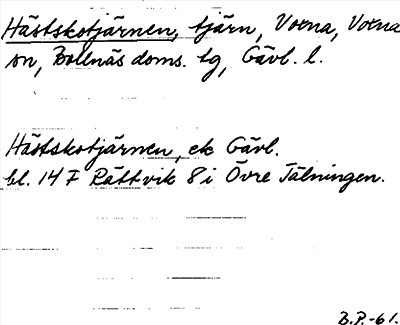 Hästskotjärnen, tjärn, Voxna, Voxna
sn, Bollnäs doms. tg, Gävl. l.
Hästskotjärnen, ek Gävl.
bl. 14 F Rättvik 8 i Övre Tälningen.
B.P.-61.